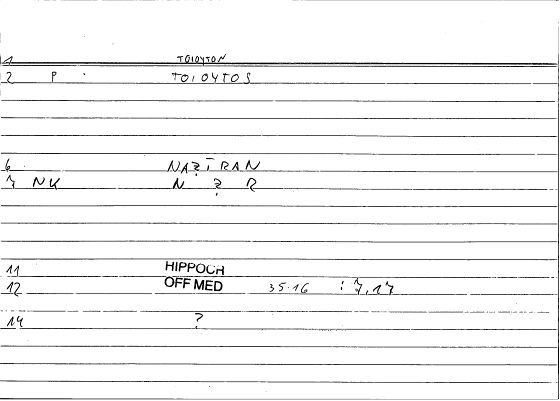 1 TOIOYTON
2 P TOIOYTOS
6 NAȤTRAN
7 NK N Ȥ R
11 HIPPOCR
12 OFF MED 35.16 : 7,17
14 ?